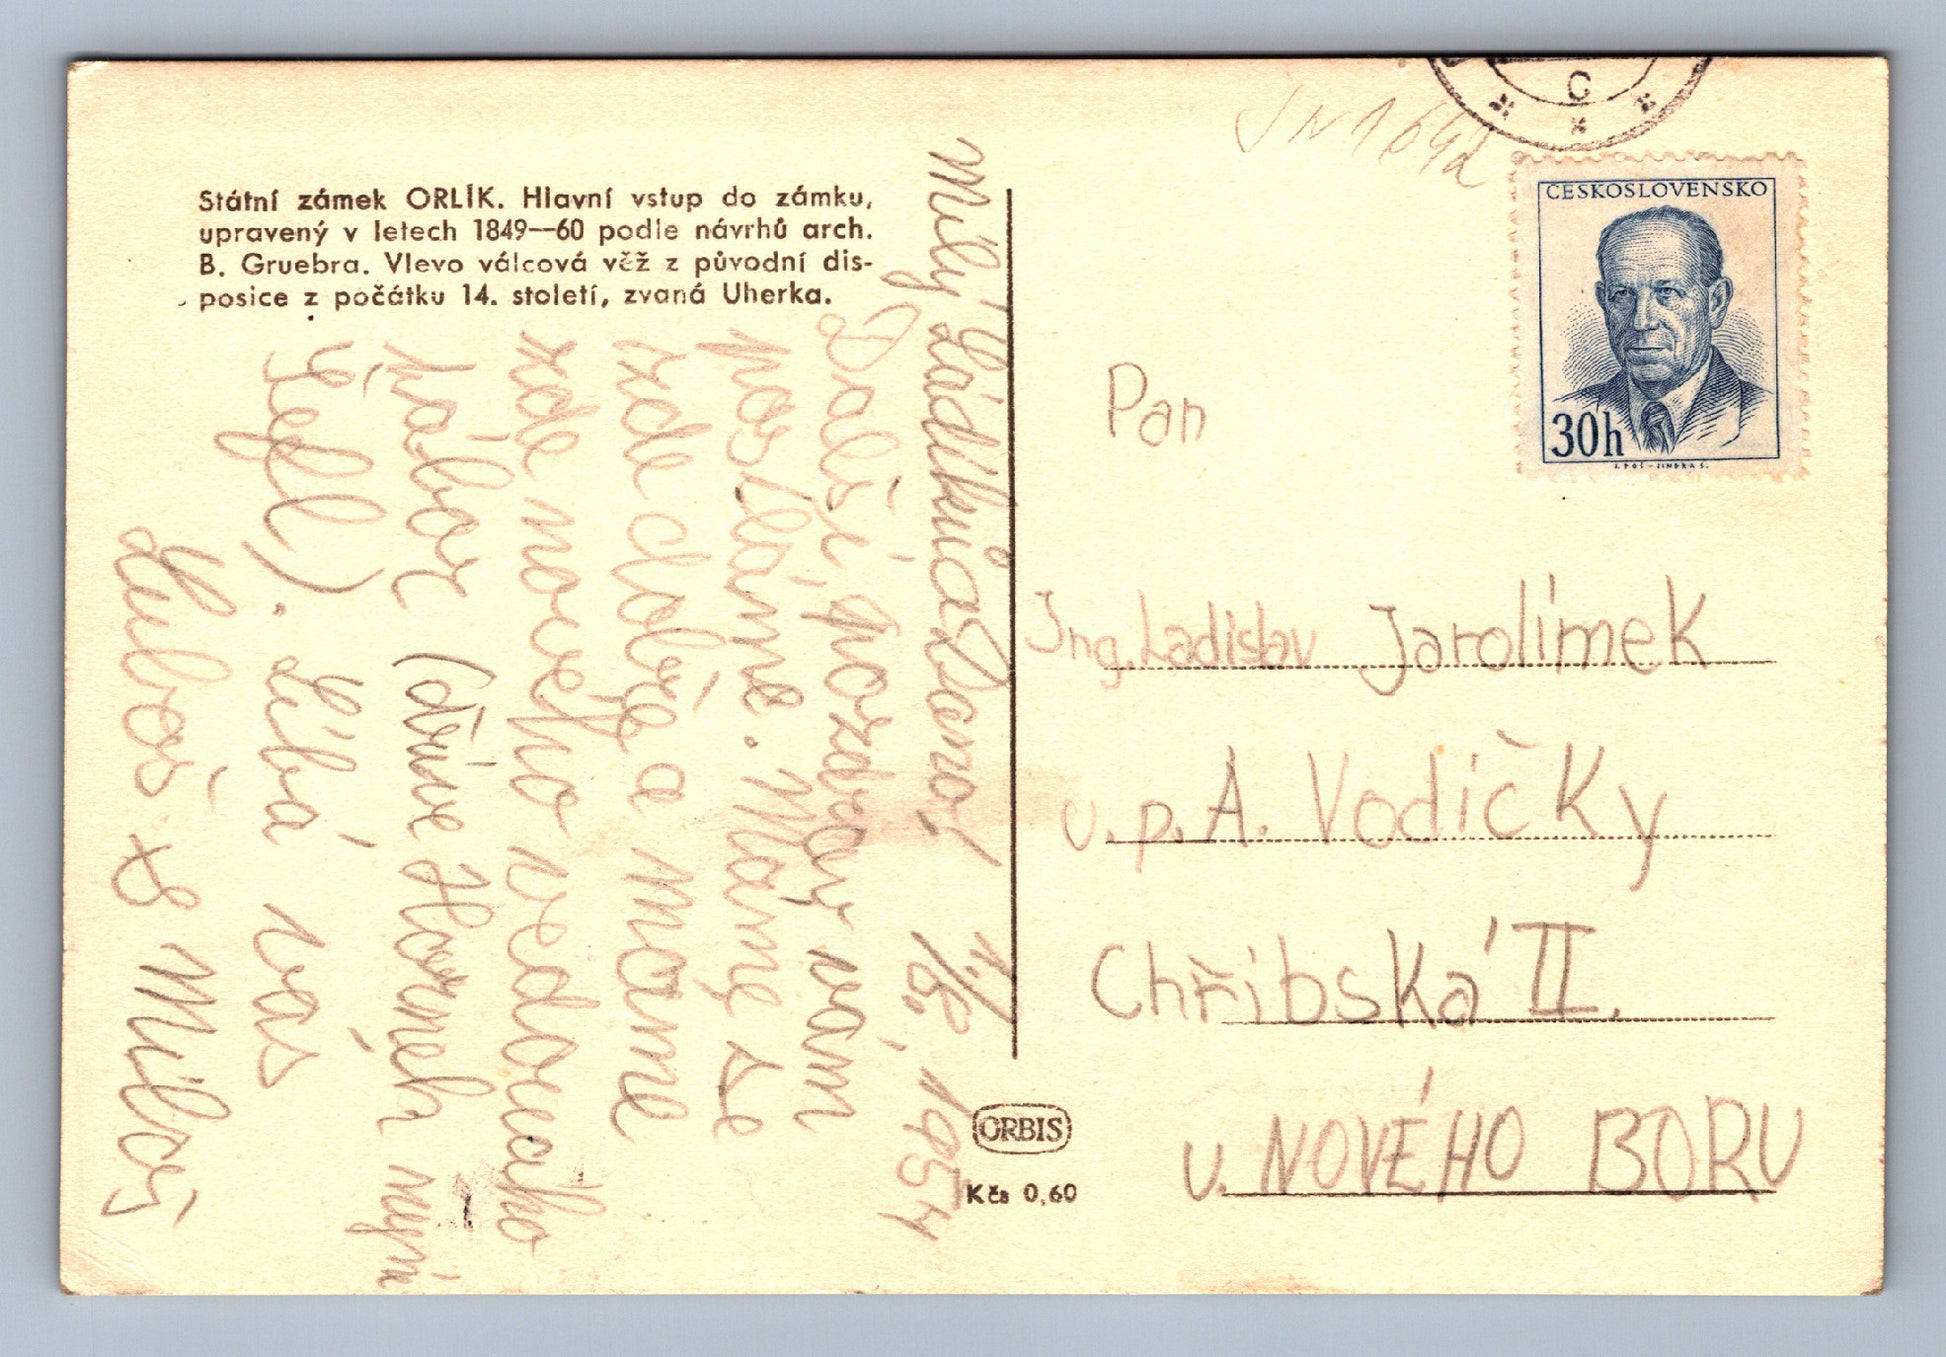 Státní zámek ORLÍK. Hlavní vstup do zámku,
upravený v letech 1849—60 podle návrhů arch.
B. Gruebra. Vlevo válcová věž z původní dis-
posice z počátku 14. století, zvaná Uherka.
Milý Ládíků a
1./8. 1954
Další pozdrav vám
posláme. Máme se
zde dobře a máme
zde nového vedoucího
tábor (dříve Horneh nyní
Šéfl). Líbá vás
Luboš & Miloš
ORBIS
Kčs 0,60
C
JN 1642
ČESKOSLOVENSKO
30h
Pan
Ing. Ladislav Jarolímek
u. p. A. Vodičky
Chřibská II.
u. NOVÉHO BORU